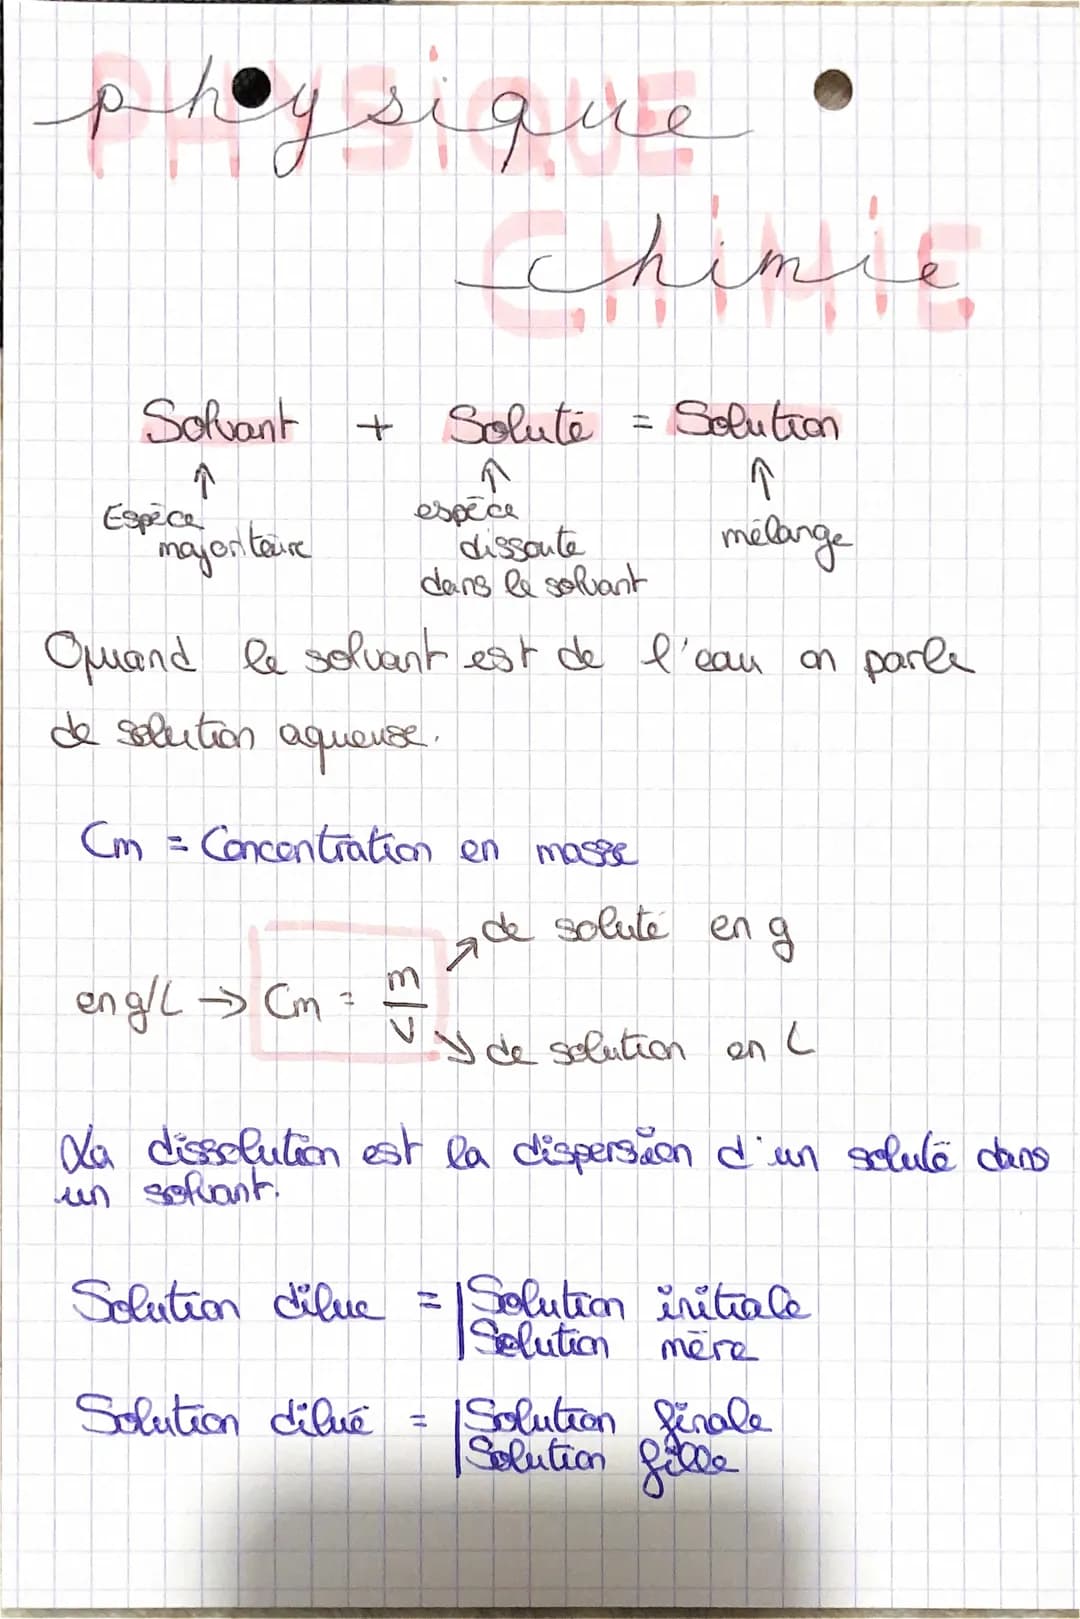 physique
PHYSiQUE
chimie
CHiMiE
Solvant + Soluté = Solution
↑ ↑ ↑
Espèce majoritaire
espèce dissoute dans le solvant
mélange
Quand le solvant est de l'eau on parle
de solution aqueuse.
Cm = Concentration en masse
de soluté en g
en g/L → Cm = m/V
de solution en L
La dissolution est la dispersion d'un soluté dans
un solvant.
Solution dilue = | Solution initiale
| Solution mère
Solution dilué = | Solution finale
| Solution fille